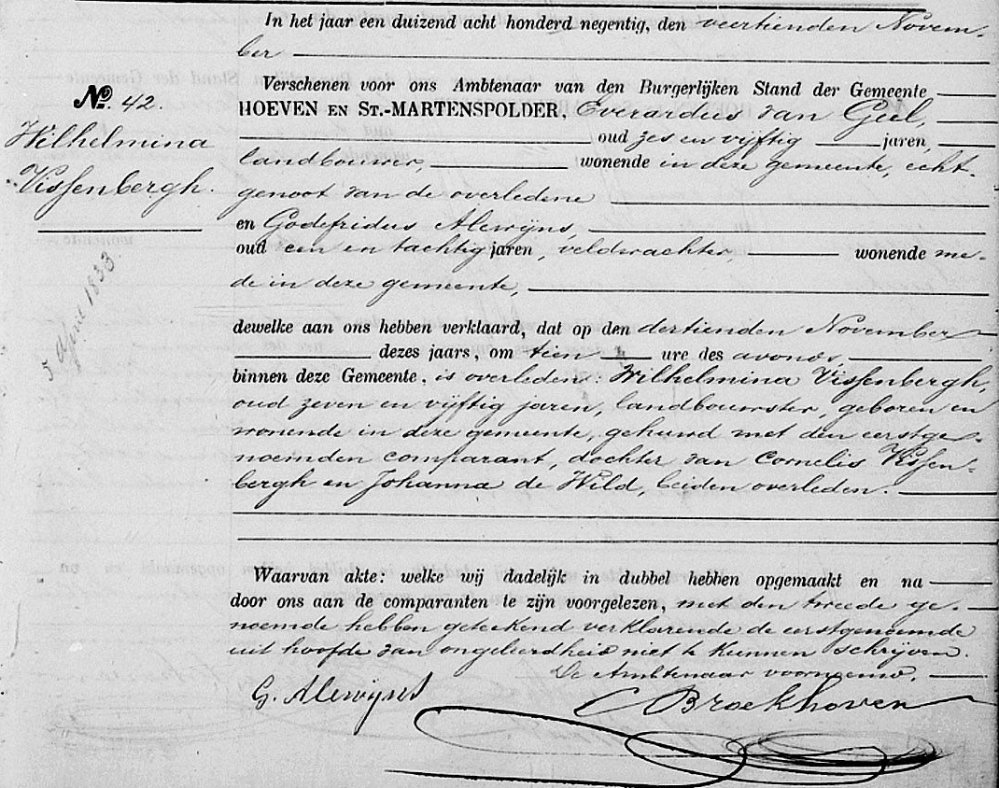 In het jaar een duizend acht honderd negentig, den veertienden Novem-
ber
Verschenen voor ons Ambtenaar van den Burgerlijken Stand der Gemeente
No. 42.
HOEVEN EN ST.-MARTENSPOLDER, Everardus van Geel,
Wilhelmina
oud zes en vijftig jaren,
landbouwer, wonende in deze gemeente, echt-
Vissenbergh.
genoot van de overledene
en Godefridus Alewijns,
oud een en tachtig jaren, veldwachter, wonende me-
de in deze gemeente,
5 April 1833
dewelke aan ons hebben verklaard, dat op den dertienden November
dezes jaars, om tien ure des avonds,
binnen deze Gemeente, is overleden: Wilhelmina Vissenbergh,
oud zeven en vijftig jaren, landbouwster, geboren en
wonende in deze gemeente, gehuwd met den eerstge-
noemden comparant, dochter van Cornelis Vissen-
bergh en Johanna de Wild, beiden overleden.
Waarvan akte: welke wij dadelijk in dubbel hebben opgemaakt en na
door ons aan de comparanten te zijn voorgelezen, met den tweede ge-
noemde hebben geteekend verklarende de eerstgenoemde
uit hoofde van ongeleerdheid niet te kunnen schrijven.
De Ambtenaar voornoemd.
G. Alewijns
C Broekhoven